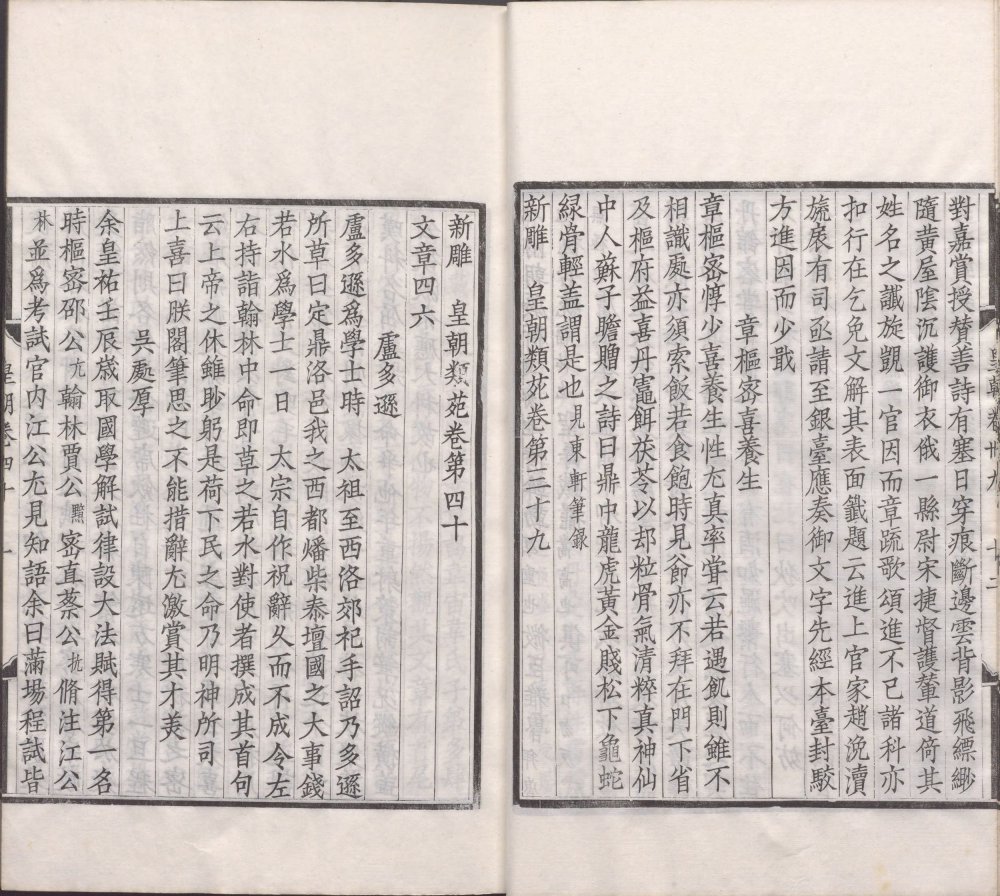 對嘉賞授賛善詩有塞日穿痕斷邊雲背影飛縹緲
隨黄屋陰沉護御衣俄一縣尉宋捷督護輦道倚其
姓名之讖旋凱一官因而章疏歌頌進不已諸科亦
扣行在乞免文解其表面籤題云進上官家趙浼瀆
旒扆有司亟請至銀臺應奏御文字先經本臺封駮
方進因而少戢
章樞密喜養生
章樞密惇少喜養生性尤真率嘗云若遇飢則雖不
相識處亦須索飯若食飽時見爺亦不拜在門下省
及樞府益喜丹竈餌茯苓以却粒骨氣清粹真神仙
中人蘇子瞻贈之詩曰鼎中龍虎黃金賤松下龜蛇
緑骨輕盖謂是也見東軒筆録
新雕　皇朝類苑卷第三十九
皇朝卷卅九　十二
新雕　皇朝類苑卷第四十
文章四六
盧多遜
盧多遜爲學士時　太祖至西洛郊祀手詔乃多遜
所草曰定鼎洛邑我之西都燔柴泰壇國之大事錢
若水爲學士一日　太宗自作祝辭久而不成令左
右持詣翰林中命即草之若水對使者撰成其首句
云上帝之休雖眇躬是荷下民之命乃明神所司
上喜曰朕閣筆思之不能措辭尤激賞其才美
吳處厚
余皇祐壬辰歳取國學解試律設大法賦得第一名
時樞密邵公亢翰林賈公黯密直蔡公抗脩注江公
休並爲考試官内江公尤見知語余曰滿場程試皆
皇朝卷四十　一